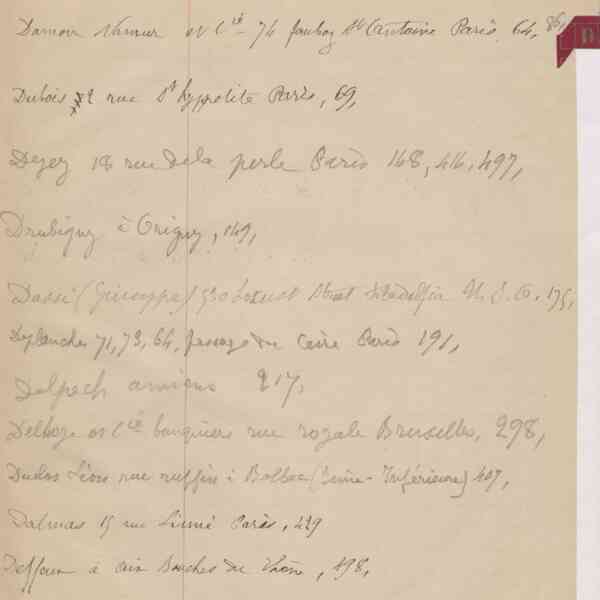 Damoir Namur et Cie 74 faubog St Antoine Paris, 64, 86,
Dubois 2 rue St hyppolite Paris, 69,
Dezez 18 rue de la perle Paris 148, 416, 497,
Drubigny à Origny, 149,
Dassi (Giuseppe) 930 Locust Street Filadelfia U. S. A. 175,
Deplanches 71, 73, 64, Passage du Caire Paris 191,
Delpech amiens 217,
Delloye et Cie banquiers rue royale Bruxelles, 298,
Duclos Léon rue ruffin à Bolbec (Seine-Inférieure) 407,
Dalmas 15 rue Linné Paris, 429
Deffour à aix Bouches du Rhône, 498,
D